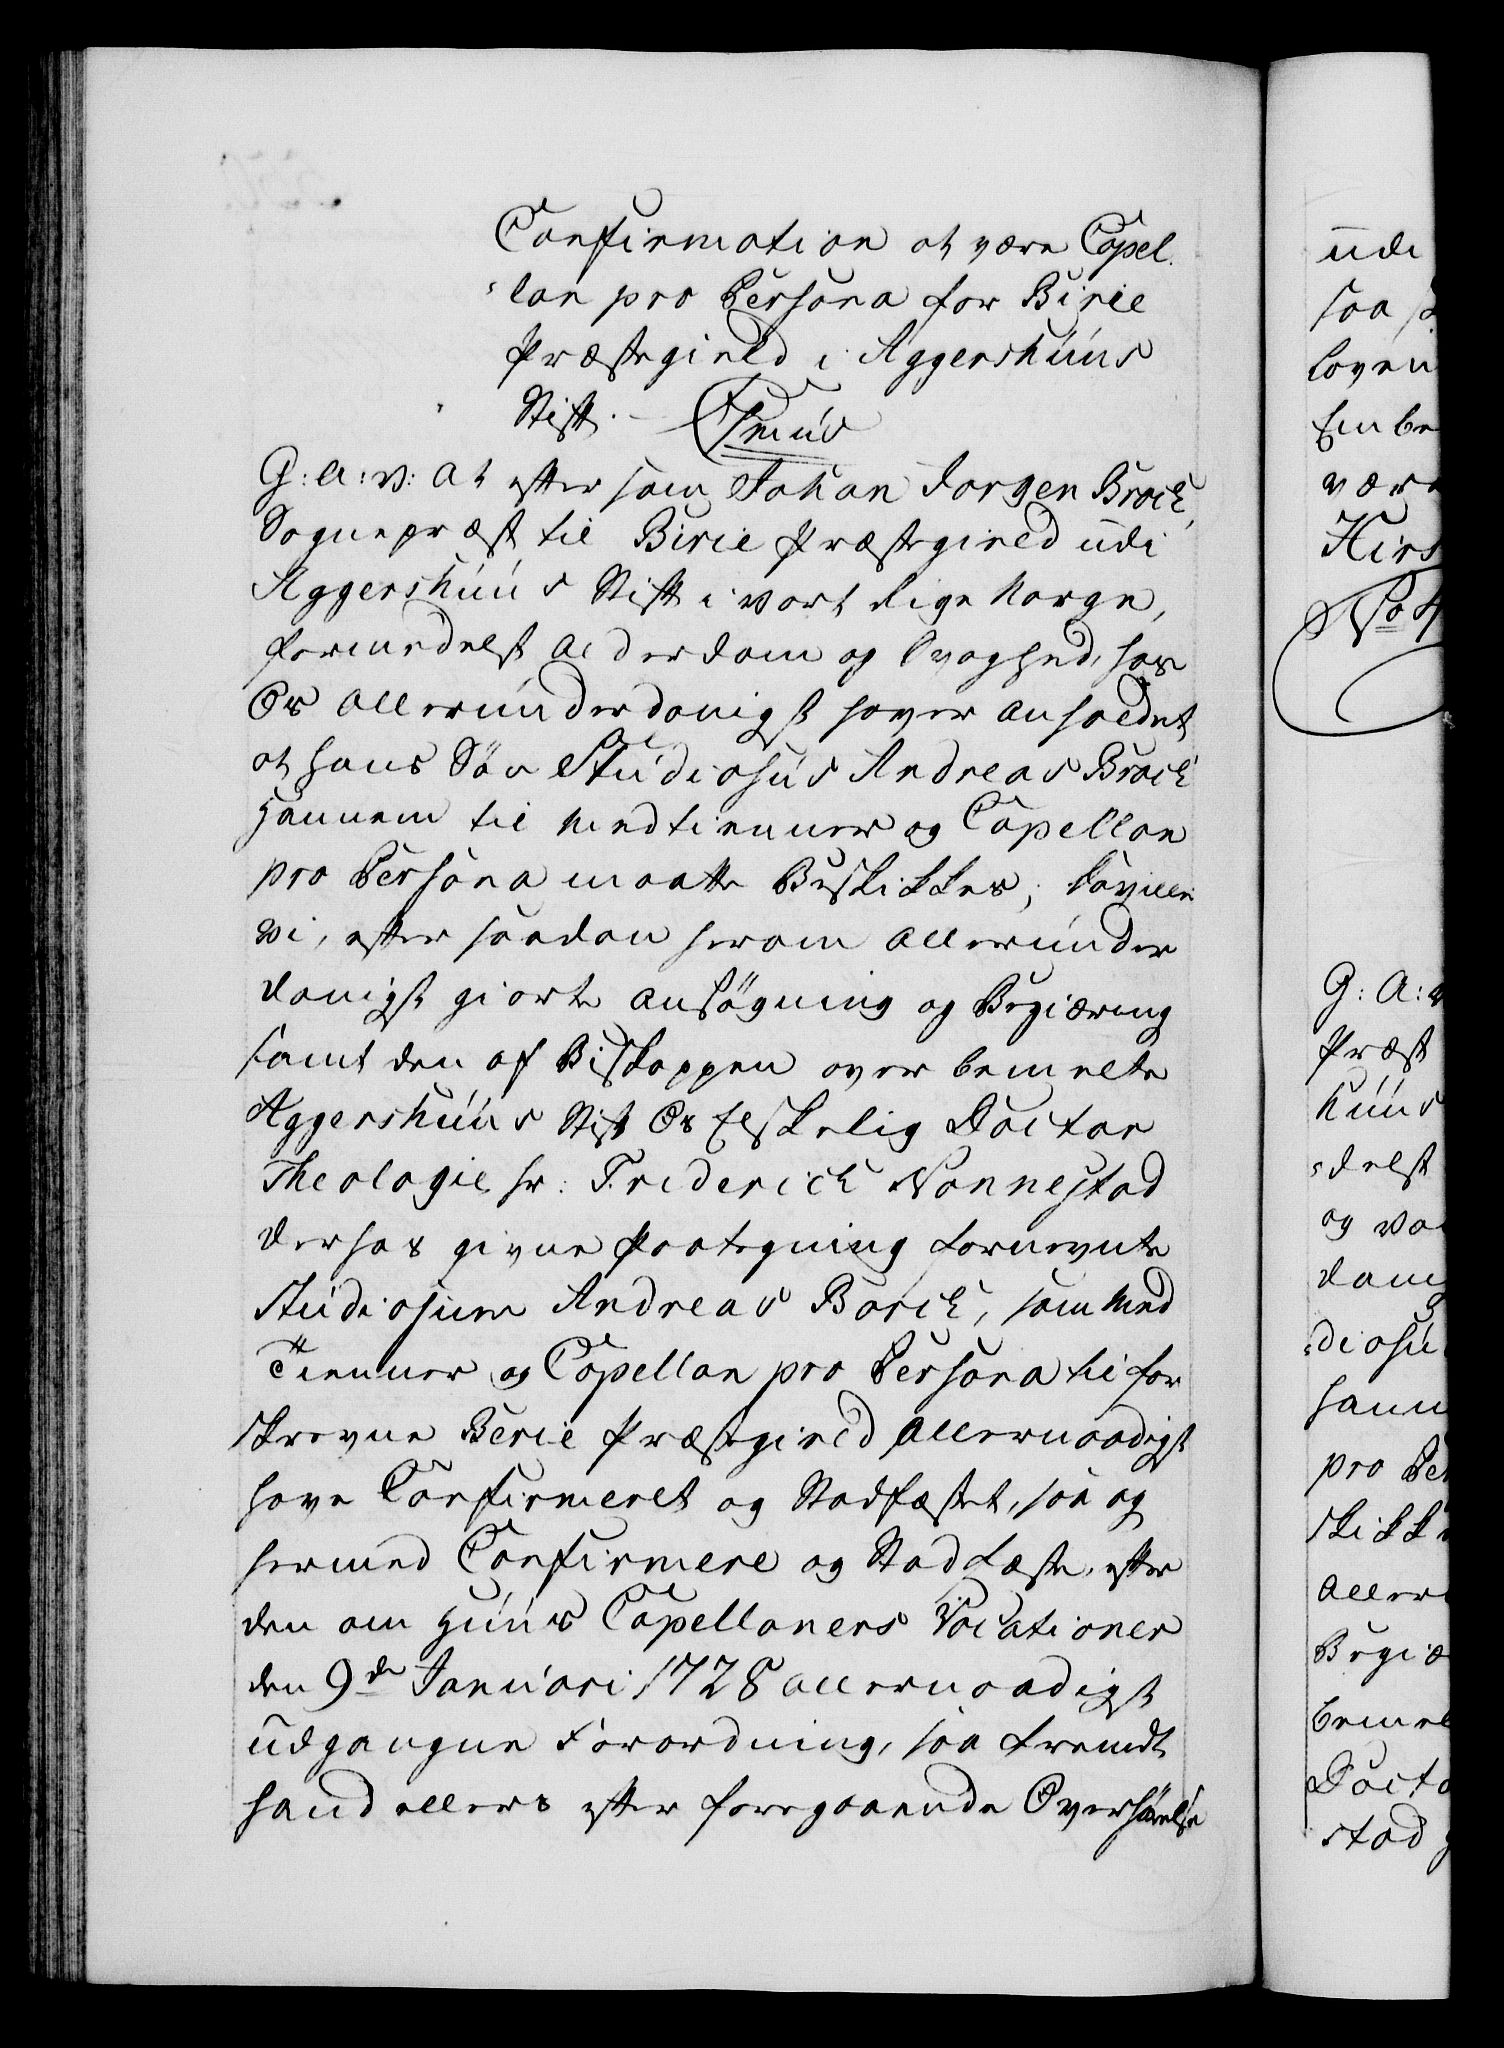 Confirmation at være Capel-
lan pro Persona for Birie
Præstegield i Aggershuus
Stift.
G: A: V: At eftersom Johan Jorgen Brock,
Sognepræst til Birie Præstegield udi
Aggershuus Stift i vort Rige Norge,
formedelst Alderdom og Svaghed, hos
Os allerunderdanigst haver anholdet
at hans Søn Studiosus Andreas Brock
hannem til Medtienner og Capellan
pro Persona maatte Beskikkes; Da ville
Vi, efter saadan herom allerunder
danigst giorte Ansøgning og Begiæring
samt den af Biskoppen over bemelte
Aggershuus Stift Os Elskelig Doctor
Theologiæ Hr: Friderick Nannestad
derhos givne Paategning fornevnte
Studiosum Andreas Borck, som Med
Tienner og Capellan pro Persona til for
skrevne Berie Præstegield Allernaadigst
have Confirmeret og Stadfæstet, saa og
hermed Confirmere og Stadfæste, efter
den om Huus Capellaners Vocationer
den 9de Januari 1728 allernaadigst
udgangne Forordning, saa fremdt
hand ellers efter foregaaende Overhørelse
udi
saa
loven
Embe
være
Kirs
G: A: V
Præst
huus
delst
og Va
dani
diosu
hann
pro Per
skikke
Aller
Begiæ
bemel
Docto
stad